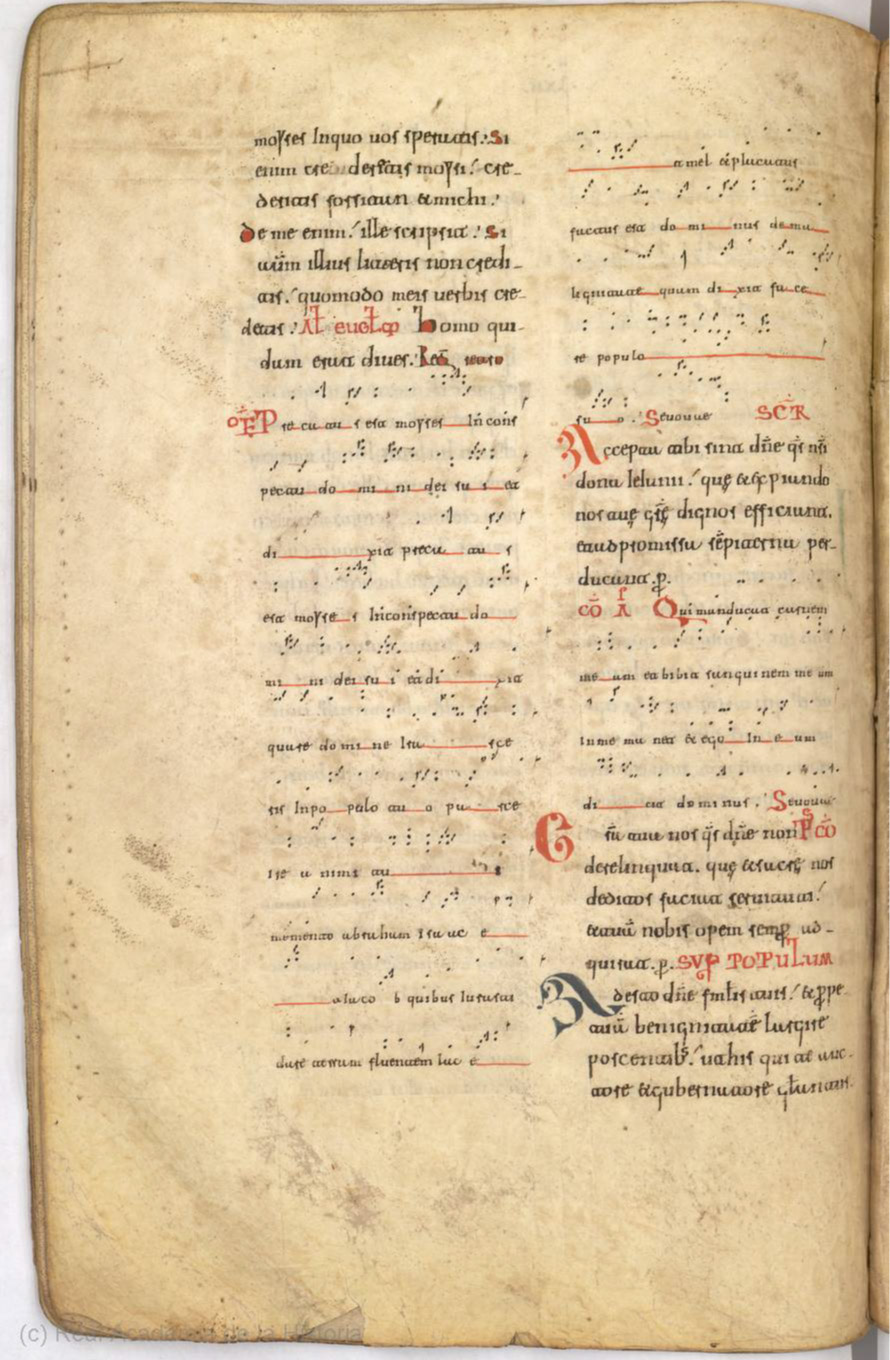 moyses Inquo uos speratis. Si
enim crederetis moysi. cre-
deretis forsitan & michi.
De me enim. ille scripsit. Si
autem illius litteris non credi-
tis. quomodo meis uerbis cre-
detis. Alt euglm homo qui-
dam erat diues. Req retro
OFR Precatus est moyses In cons
pectu domini dei sui et
dixit precatus
est moyses In conspectu do
mini dei sui et dixit
quare domine Irasce
ris In populo tuo parce
ire anime tue
memento abraham Isaac e
t iacob quibus Iurasti
dare terram fluentem lac e
t mel et placatus
factus est dominus de ma
lignitate quam dixit face
re populo
suo. Seuouae SCR
Accepta tibi sint dne qs nri
dona Ieiunii. que & expiando
nos tue gre dignos efficiant.
et ad promissa sempiterna per-
ducant. p.
CO A Qui manducat carnem
meam et bibit sanguinem meum
In me manet & ego In eum
dicit dominus. Seuouae
Tua nos qs dne non P CO
derelinquant. que & sacris nos
deditos faciant seruitiis.
& tuam nobis opem semp ad-
quirant. p. SUP POPULUM
Adesto dne fmlis tuis. & ppe
tuam benignitatem largire
poscentibs. ut his qui te auc-
tore & gubernatore gloriantr